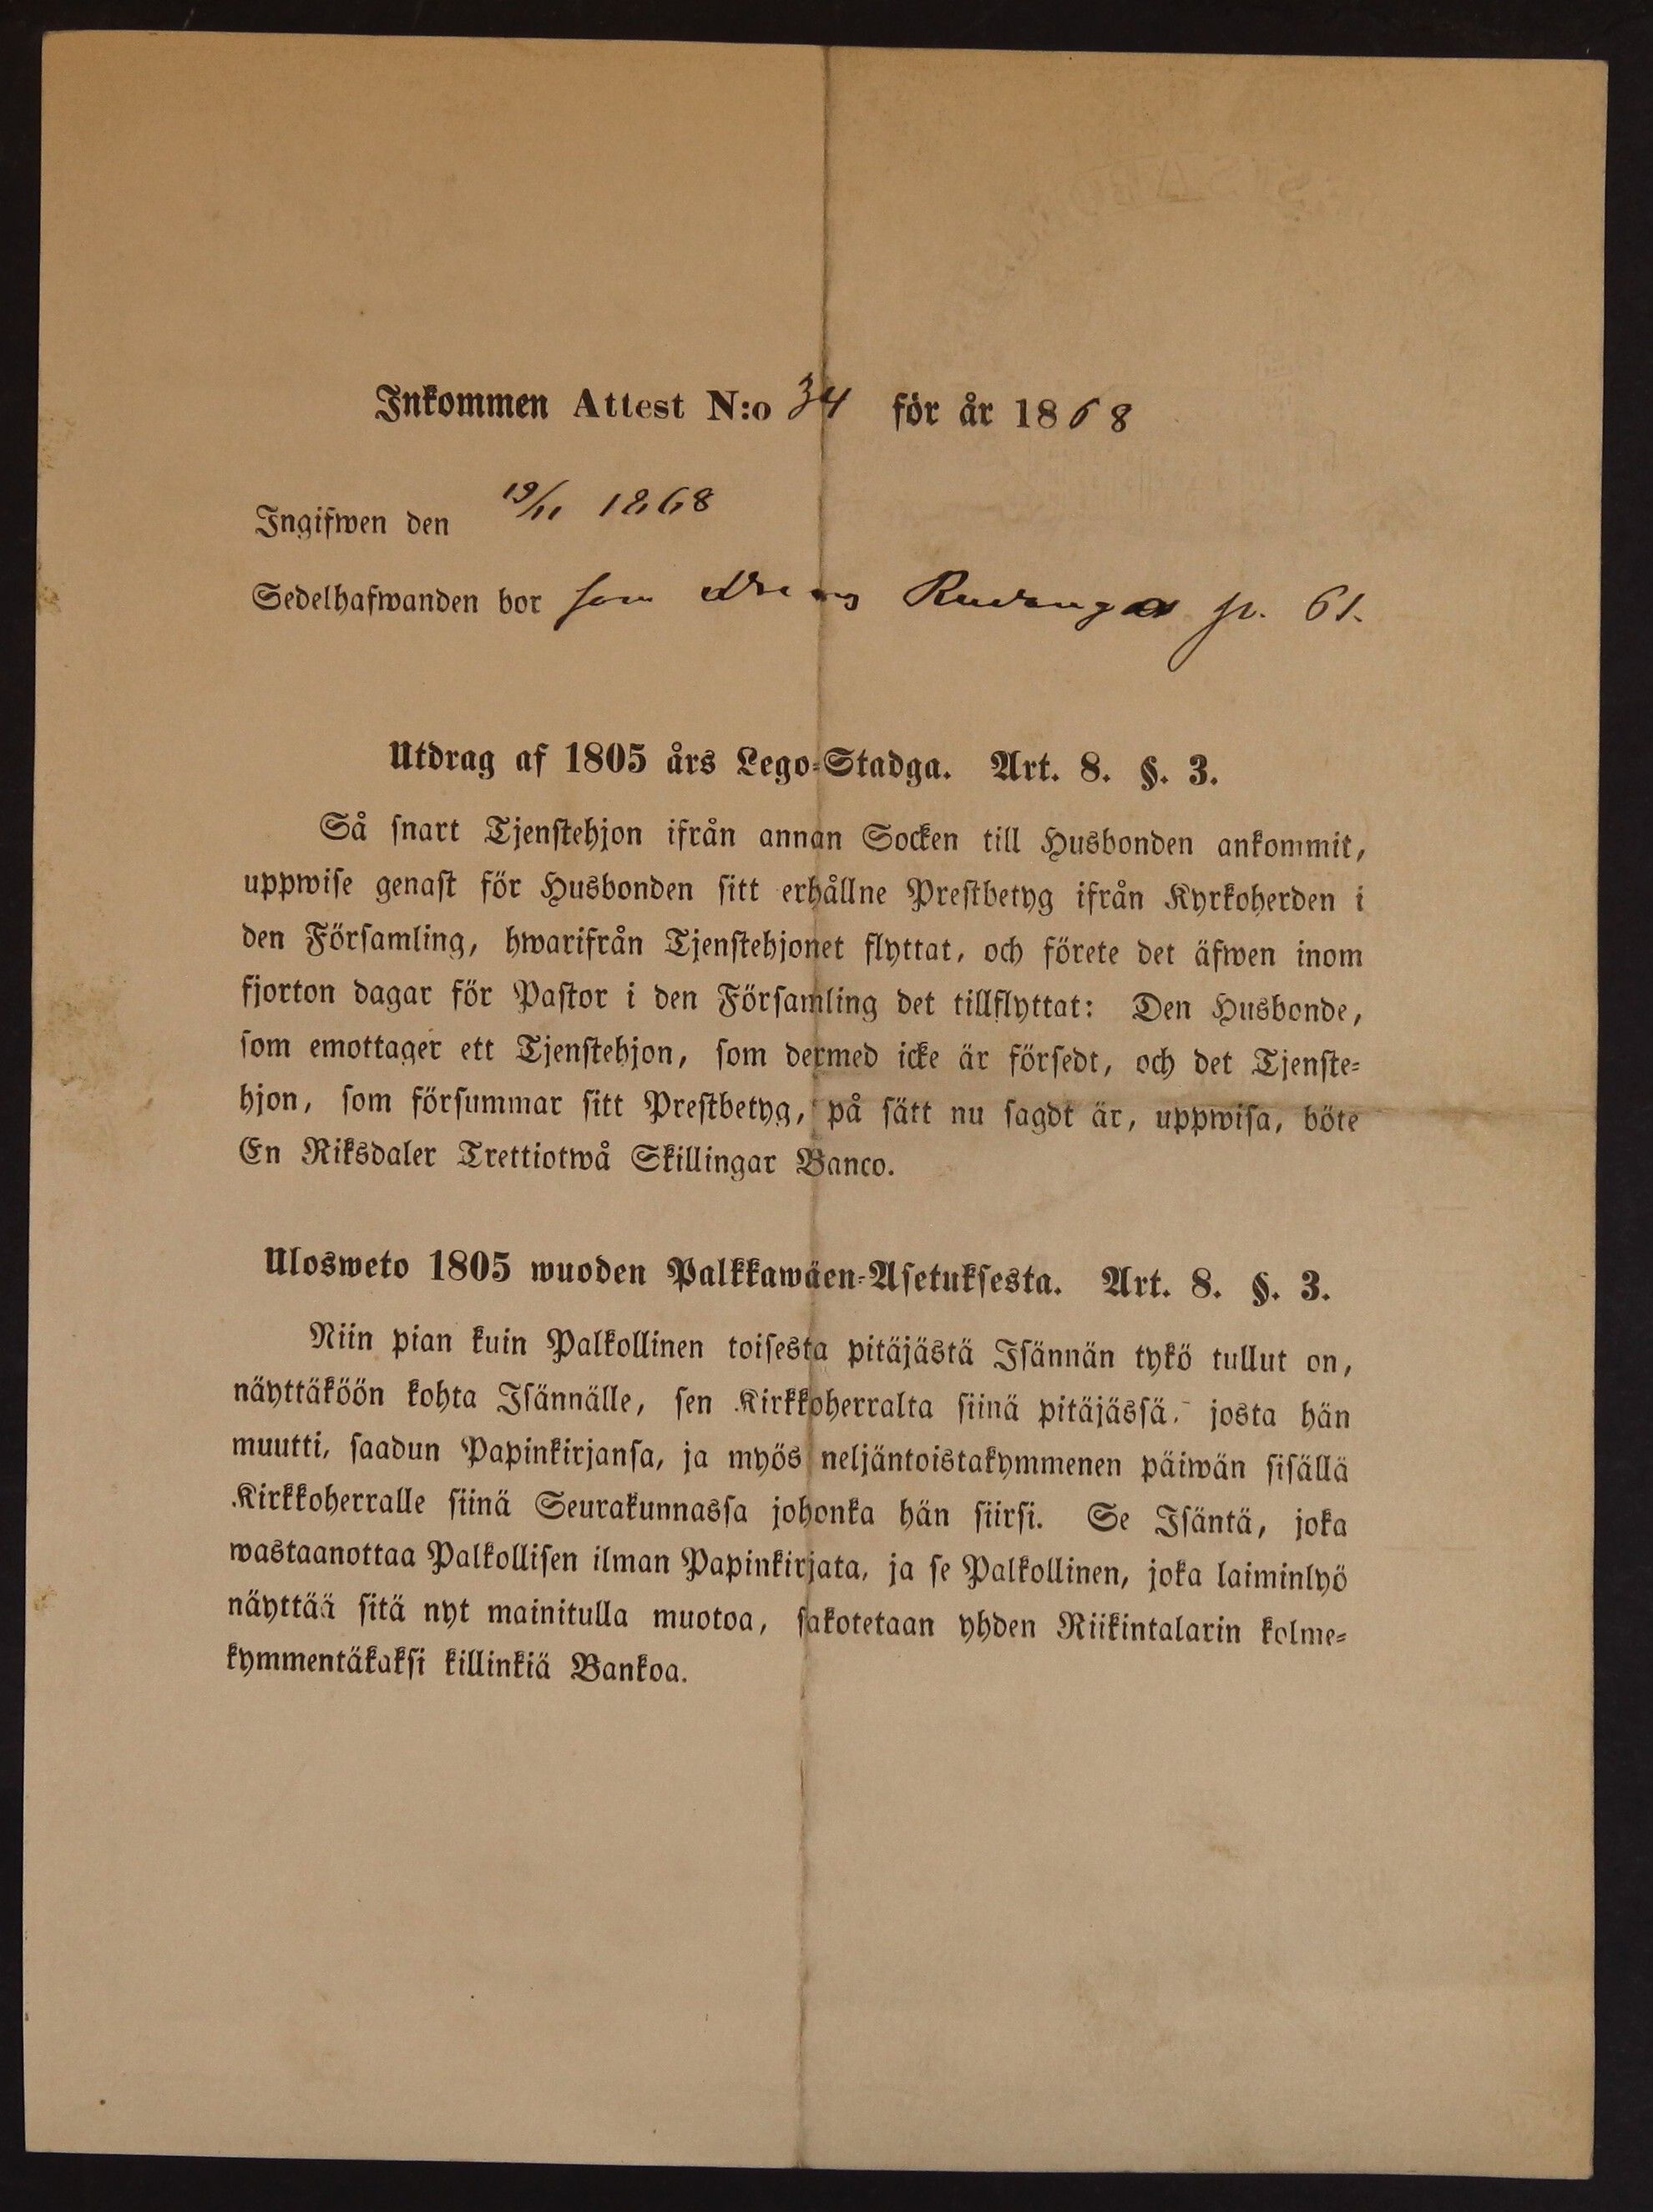 Inkommen Attest N:o 34 för år 1868
Ingifwen den 19/11 1868
Sedelhafwanden bor som dreng p. 61.
Utdrag af 1805 års Lego-Stadga. Art. 8. §. 3.
Så snart Tjenstehjon ifrån annan Socken till Husbonden ankommit,
uppwise genast för Husbonden sitt erhållne Prestbetyg ifrån Kyrkoherden i
den Församling, hwarifrån Tjenstehjonet flyttat, och förete det äfwen inom
fjorton dagar för Pastor i den Församling det tillflyttat: Den Husbonde,
som emottager ett Tjenstehjon, som dermed icke är försedt, och det Tjenste-
hjon, som försummar sitt Prestbetyg, på sätt nu sagdt är, uppwisa, böte
En Riksdaler Trettiotwå Skillingar Banco.
Ulosweto 1805 wuoden Palkkawäen-Asetuksesta. Art. 8. §. 3.
Niin pian kuin Palkollinen toisesta pitäjästä Isännän tykö tullut on,
näyttäköön kohta Isännälle, sen Kirkkoherralta siinä pitäjässä, josta hän
muutti, saadun Papinkirjansa, ja myös neljäntoistakymmenen päiwän sisällä
Kirkkoherralle siinä Seurakunnassa johonka hän siirsi. Se Isäntä, joka
wastaanottaa Palkollisen ilman Papinkirjata, ja se Palkollinen, joka laiminlyö
näyttää sitä nyt mainitulla muotoa, sakotetaan yhden Riikintalarin kolme-
kymmentäkaksi killinkiä Bankoa.